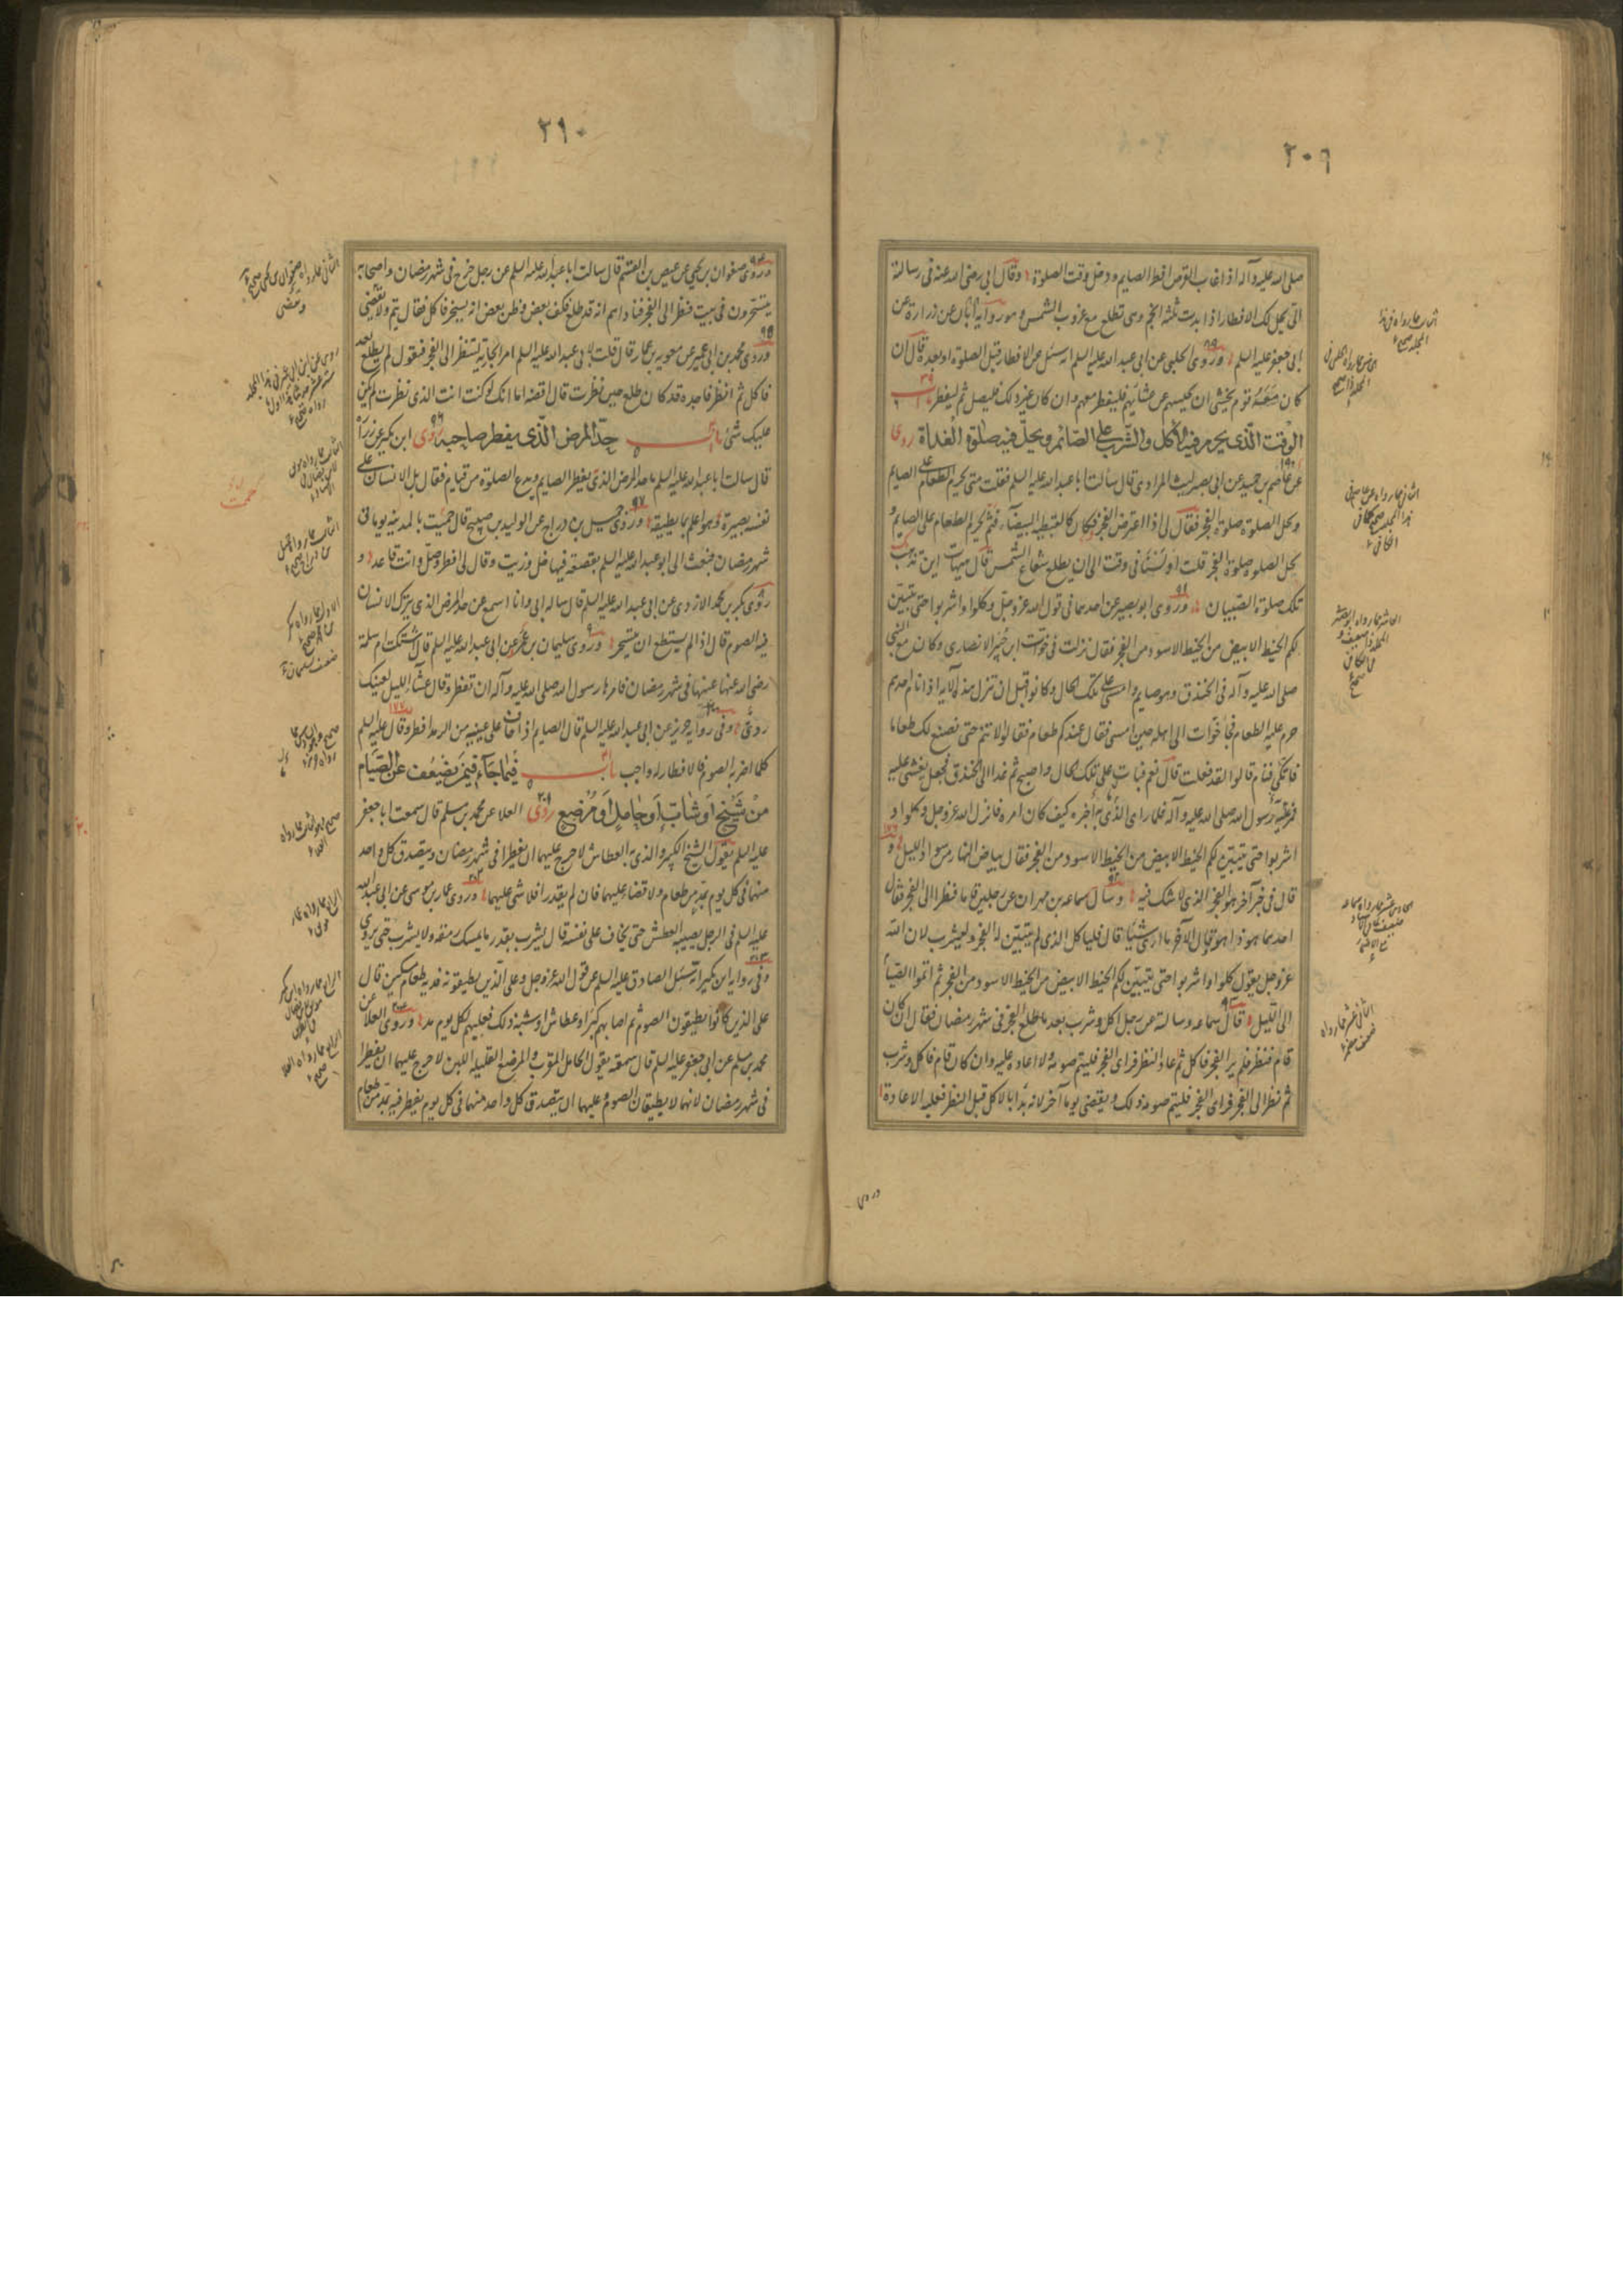 ٢٠٩
صلى الله عليه وآله اذا غاب القرص افطر الصايم ودخل وقت الصلوة وقال ابي رضى الله عنه في رسالته
الى يحل لك الافطار اذا بدت ثلثة انجم وهى تطلع مع غروب الشمس وهو رواية ابان عن زرارة عن
ابى جعفر عليه السلم وروى الحلبى عن ابى عبد الله عليه السلم انه سئل عن الافطار قبل الصلوة او بعدها قال ان
كان معه قوم يخشى ان يحبسهم عن عشائهم فليفطر معهم وان كان غير ذلك فليصل ثم ليفطر باب
الوقت الذى يحرم فيه الاكل والشرب على الصائم ويحل فيه صلوة الغداة روى
عن عاصم بن حميد عن ابى بصير ليث المرادى قال سألت ابا عبد الله عليه السلم فقلت متى يحرم الطعام على الصايم
وتحل الصلوة صلوة الفجر فقال لى اذا اعترض الفجر فكان كالقبطية البيضاء فثم يحرم الطعام على الصايم و
تحل الصلوة صلوة الفجر قلت اولسنا في وقت الى ان يطلع شعاع الشمس قال هيهات اين تذهب
تلك صلوة الصبيان وروى ابو بصير عن احدهما في قول الله عز وجل وكلوا واشربوا حتى يتبين
لكم الخيط الابيض من الخيط الاسود من الفجر فقال نزلت في خوات ابن جبير الانصارى وكان مع النبى
صلى الله عليه وآله في الخندق وهو صايم وامسى على تلك الحال وكانوا قبل ان تنزل هذه الآية اذا نام احدهم
حرم عليه الطعام فجا خوات الى اهله حين امسى فقال عندكم طعام فقالوا لا تنم حتى نصنع لك طعاما
فاتكى فنام قالوا لقد فعلت قال نعم فبات على تلك الحال واصبح ثم غدا الى الخندق فجعل يغشى عليه
فمر به رسول الله صلى الله عليه وآله فلما راى الذى به اخبره كيف كان امره فانزل الله عز وجل وكلوا و
اشربوا حتى يتبين لكم الخيط الابيض من الخيط الاسود من الفجر فقال بياض النهار من سواد الليل و
قال في خبر آخر هو الفجر الذى لا شك فيه وسأل سماعه بن مهران عن رجلين قاما فنظرا الى الفجر فقال
احدهما هوذا هو وقال الآخر ما ارى شيئا قال فلياكل الذى لم يتبين له الفجر وليشرب لان الله
عز وجل يقول كلوا واشربوا حتى يتبين لكم الخيط الابيض من الخيط الاسود من الفجر ثم اتموا الصيام
الى الليل قال سماعه وسالته عن رجل اكل وشرب بعد ما طلع الفجر في شهر رمضان فقال ان كان
قام فنظر فلم ير الفجر فاكل ثم عاد النظر فراى الفجر فليتم صومه ولا اعادة عليه وان كان قام فاكل وشرب
ثم نظر الى الفجر فراى الفجر فليتم صومه ذلك ويقضى يوما آخر لانه بدأ بالاكل قبل النظر فعليه الاعادة
وروى
٢١٠
وروى صفوان بن يحيى عن عيص بن القسم قال سالت ابا عبد الله عليه السلم عن رجل خرج في شهر رمضان واصحابه
يتسحرون في بيت فنظر الى الفجر فناداهم انه قد طلع فكف بعض وظن بعض انه يسخر فاكل فقال يتم ولا يقضى
وروى محمد بن ابى عمير عن معويه بن عمار قال قلت لابى عبد الله عليه السلم امر الجارية تنظر الى الفجر فتقول لم يطلع بعد
فاكل ثم انظر فاجده قد كان طلع حين نظرت قال اقضه اما انك لو كنت انت الذى نظرت لم يكن
عليك شئ باب حد المرض الذى يفطر صاحبه روى ابن بكير عن زرارة
قال سالت ابا عبد الله عليه السلم ما حد المرض الذى يفطر الصايم ويدع الصلوة من قيام فقال بل الانسان على
نفسه بصيرة وهو اعلم بما يطيقه وروى جميل بن دراج عن الوليد بن صبيح قال حممت بالمدينه يوما في
شهر رمضان فبعث الى ابو عبد الله عليه السلم بقصعة فيها خل وزيت وقال لى افطر وصل وانت قاعد و
روى بكر بن محمد الازدى عن ابى عبد الله عليه السلم قال ساله ابى وانا اسمع عن حد المرض الذى يترك الانسان
فيه الصوم قال اذا لم يستطع ان يتسحر وروى سليمان بن عمر عن ابى عبد الله عليه السلم قال اشتكت ام سلمة
رضى الله عنها عينها في شهر رمضان فامرها رسول الله صلى الله عليه وآله ان تفطر وقال عشاء الليل لعينك
ردى وفى رواية حريز عن ابى عبد الله عليه السلم قال الصايم اذا خاف على عينيه من الرمد افطر وقال عليه السلم
كلما اضر به الصوم فالافطار له واجب باب فيما جاء فيمن يضعف عن الصيام
من شيخ او شاب او حامل او مرضع روى العلا عن محمد بن مسلم قال سمعت ابا جعفر
عليه السلم يقول الشيخ الكبير والذى به العطاش لا حرج عليهما ان يفطرا في شهر رمضان ويتصدق كل واحد
منهما في كل يوم بمد من طعام ولا قضاء عليهما فان لم يقدرا فلا شى عليهما وروى عمار بن موسى عن ابى عبد الله
عليه السلم في الرجل يصيبه العطش حتى يخاف على نفسه قال يشرب بقدر ما يمسك رمقه ولا يشرب حتى يروى
وفى رواية ابن بكير انه سئل الصادق عليه السلم عن قول الله عز وجل وعلى الذين يطيقونه فدية طعام مسكين قال
على الذين كانوا يطيقون الصوم ثم اصابهم كبر او عطاش او شبه ذلك فعليهم لكل يوم مد وروى العلا عن
محمد بن مسلم عن ابى جعفر عليه السلم قال سمعته يقول الحامل المقرب والمرضع القليلة اللبن لا حرج عليهما ان يفطرا
في شهر رمضان لانهما لا يطيقان الصوم وعليهما ان يتصدق كل واحد منهما في كل يوم يفطر فيه بمد من طعام